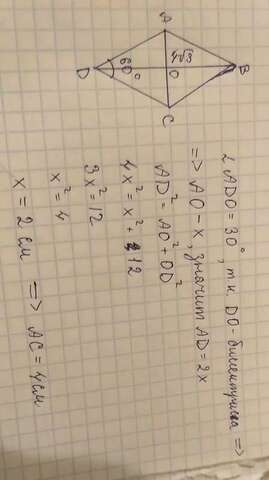 A
B
C
D
O
4√3
60°
∠ADO = 30°, т.к. DO - биссектриса =>
=> AO - x, значит AD = 2x
AD² = AO² + OD²
4x² = x² + 12
3x² = 12
x² = 4
x = 2 см => AC = 4 см